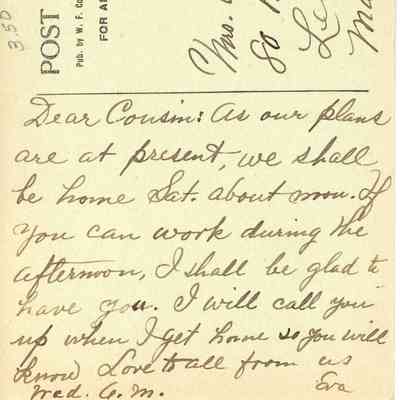 3.50
POST
Pub. by W. F. Co
FOR A
Mrs.
80
Le
Ma
Dear Cousin: As our plans
are at present, we shall
be home Sat. about noon. If
you can work during the
afternoon, I shall be glad to
have you. I will call you
up when I get home so you will
know Love to all from us
Wed. A.M. Eva